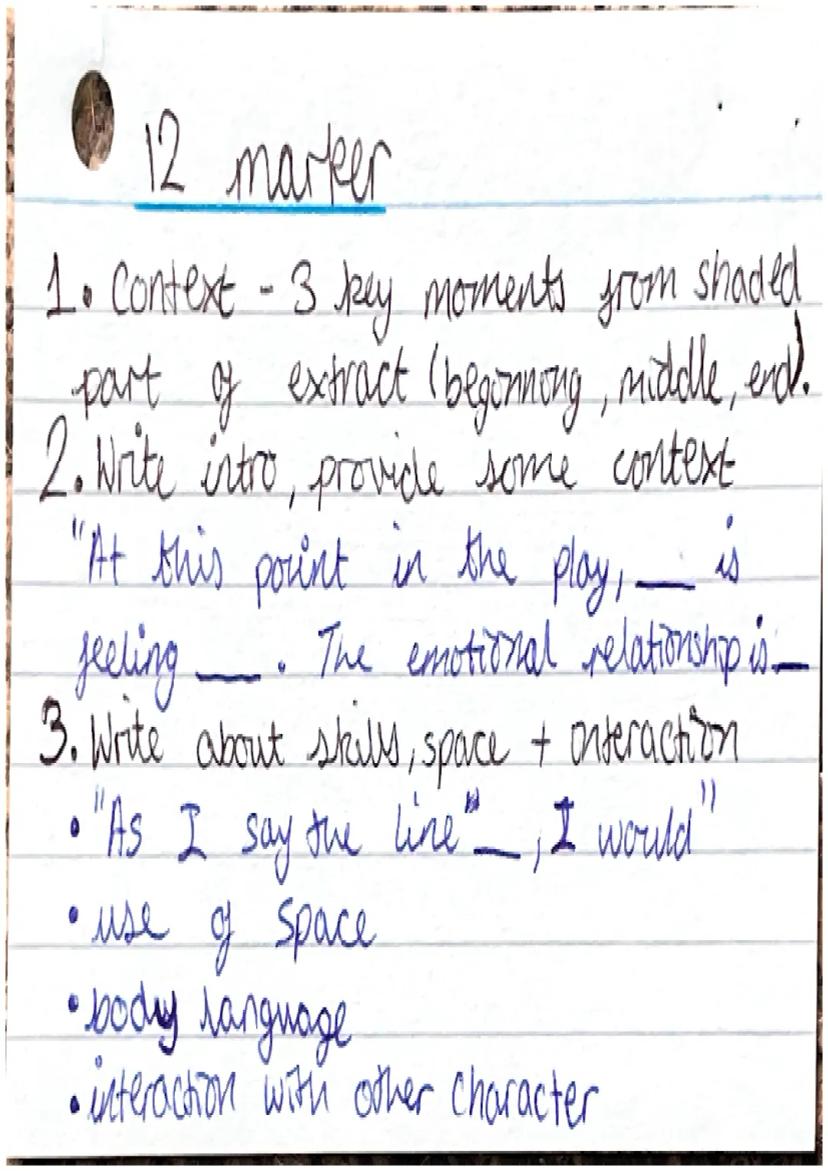 12 marker
1. Context - 3 key moments from shaded
part of extract (beginning, middle, end).
2. Write intro, provide some context
"At this point in the play, __ is
feeling __. The emotional relationship is __
3. Write about skills, space + interaction
• "As I say the line "__, I would"
• use of space
• body language
• interaction with other character